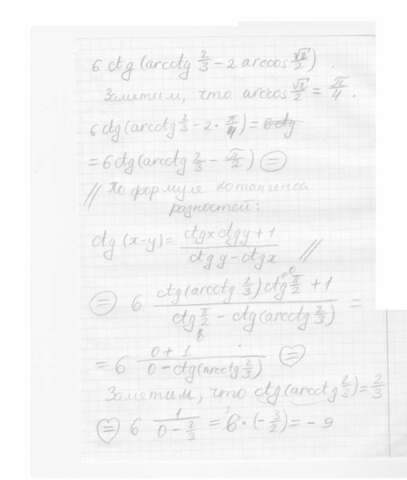 6 ctg (arcctg 2/3 - 2 arccos √2/2)
Заметим, что arccos √2/2 = π/4.
6 ctg (arcctg 2/3 - 2 · π/4) = 6 ctg
= 6 ctg (arcctg 2/3 - π/2) =
// По формуле котангенса
разностей:
ctg (x-y) = (ctgx ctgy + 1)/(ctg y - ctg x) //
= 6 (ctg (arcctg 2/3) ctg π/2 + 1)/(ctg π/2 - ctg (arcctg 2/3)) =
= 6 (0 + 1)/(0 - ctg (arcctg 2/3)) =
Заметим, что ctg (arcctg 2/3) = 2/3
= 6 1/(0 - 2/3) = 6 · (-3/2) = -9